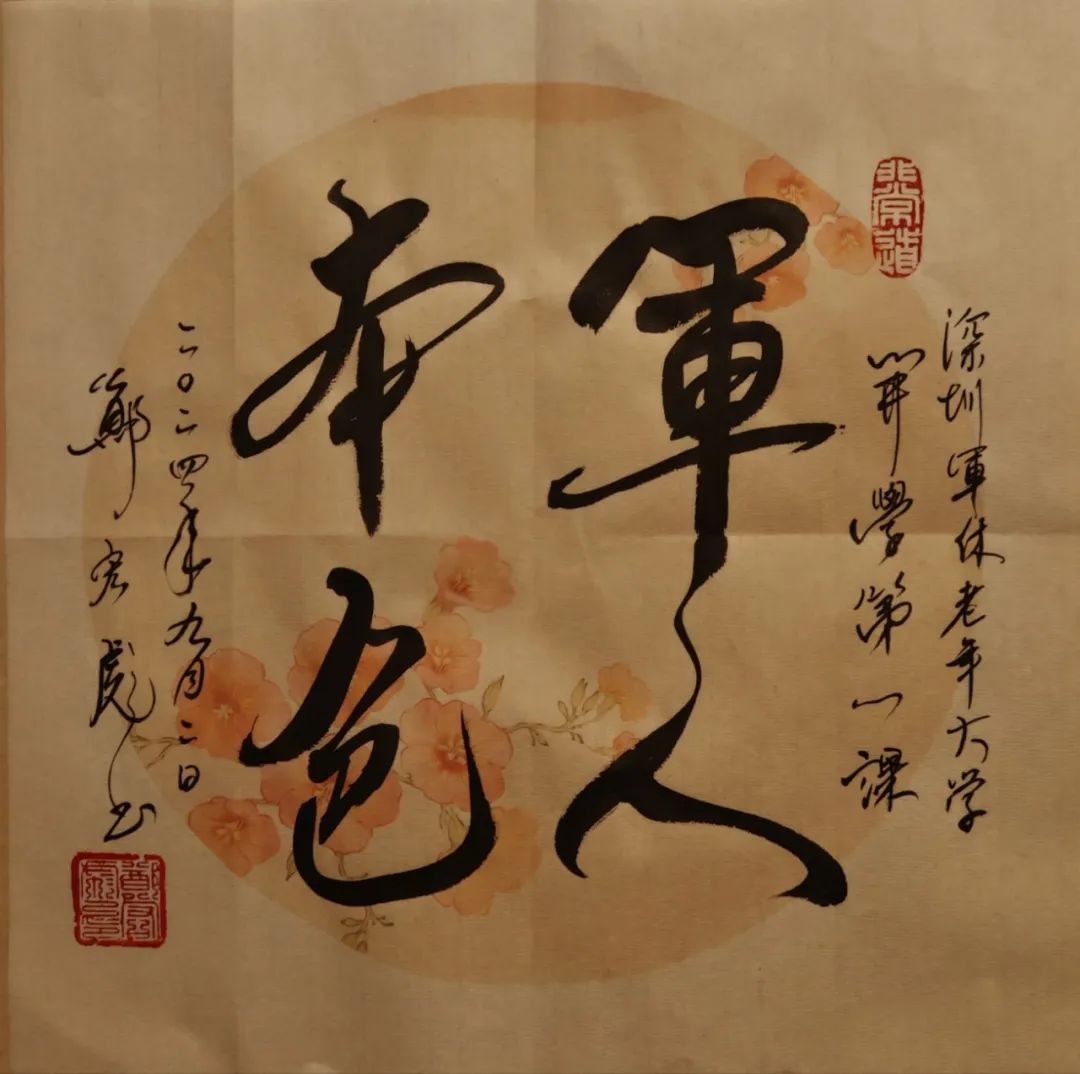 非常道
深圳軍休老年大学
開學第一課
軍人
本色
二〇二四年九月二日
鄭宏彪书